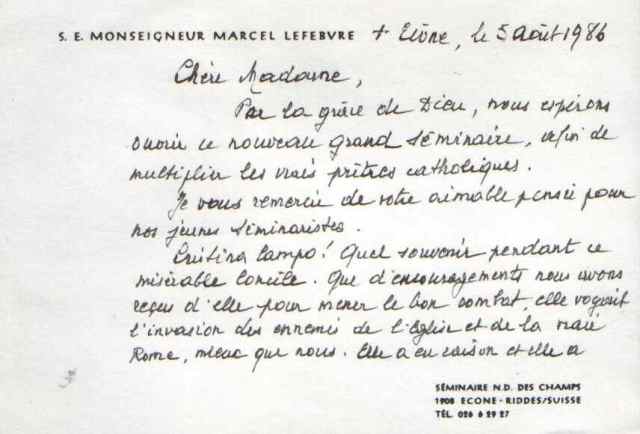 S. E. MONSEIGNEUR MARCEL LEFEBVRE + Ecône, le 5 août 1986
Chère Madame,
Par la grâce de Dieu, nous espérons
ouvrir ce nouveau grand séminaire, afin de
multiplier les vrais prêtres catholiques.
Je vous remercie de votre aimable pensée pour
nos jeunes séminaristes.
Cristina Campo! Quel souvenir pendant ce
misérable Concile. Que d'encouragements nous avons
reçus d'elle pour mener le bon combat, elle voyait
l'invasion des ennemis de l'Eglise et de la vraie
Rome, mieux que nous. Elle a eu raison et elle a
SÉMINAIRE N.D. DES CHAMPS
1908 ECONE - RIDDES/SUISSE
TÉL. 026 6 29 27